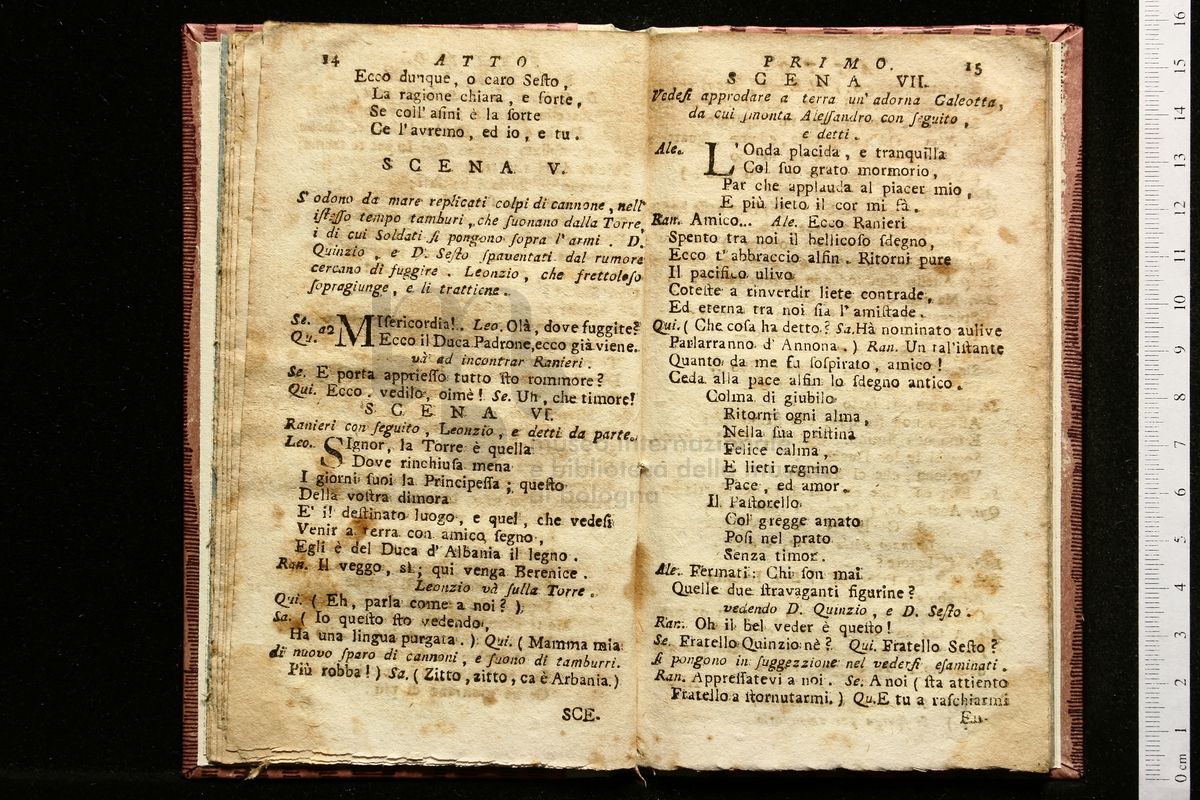 14 ATTO
Ecco dunque, o caro Seſto,
La ragione chiara, e forte,
Se coll' aſini è la ſorte
Ce l'avremo, ed io, e tu.
SCENA V.
S' odono da mare replicati colpi di cannone, nell'
iſteſſo tempo tamburi, che ſuonano dalla Torre,
i di cui Soldati ſi pongono ſopra l'armi. D.
Quinzio, e D. Seſto ſpaventati dal rumore
cercano di fuggire. Leonzio, che frettoloſo
ſopragiunge, e li trattiene.
Se.
Qu. a2 MIſericordia!. Leo. Olà, dove fuggite?
Ecco il Duca Padrone, ecco già viene.
và ad incontrar Ranieri.
Se. E porta apprieſſo tutto ſto rommore?
Qui. Ecco. vedilo, oimè! Se. Uh, che timore!
SCENA VI.
Ranieri con ſeguito, Leonzio, e detti da parte.
Leo. SIgnor, la Torre è quella
Dove rinchiuſa mena
I giorni ſuoi la Principeſſa; queſto
Della voſtra dimora
E' il deſtinato luogo, e quel, che vedeſi
Venir a terra con amico ſegno,
Egli è del Duca d'Albania il legno.
Ran. Il veggo, sì; qui venga Berenice.
Leonzio và ſulla Torre.
Qui. (Eh, parla come a noi?)
Sa. (Io queſto ſto vedendo,
Ha una lingua purgata.) Qui. (Mamma mia
di nuovo ſparo di cannoni, e ſuono di tamburri.
Più robba!) Sa. (Zitto, zitto, ca è Arbania.)
SCE-
PRIMO. 15
SCENA VII.
Vedeſi approdare a terra un' adorna Galeotta,
da cui ſmonta Aleſſandro con ſeguito,
e detti.
Ale. L'Onda placida, e tranquilla
Col ſuo grato mormorio,
Par che applauda al piacer mio,
E più lieto il cor mi fà.
Ran. Amico... Ale. Ecco Ranieri
Spento tra noi il bellicoſo ſdegno,
Ecco t'abbraccio alfin. Ritorni pure
Il pacifico ulivo
Coteſte a rinverdir liete contrade,
Ed eterna tra noi ſia l'amiſtade.
Qui. (Che coſa ha detto? Sa. Hà nominato aulive
Parlarranno d'Annona.) Ran. Un tal'iſtante
Quanto da me fu ſoſpirato, amico!
Ceda alla pace alfin lo ſdegno antico.
Colma di giubilo
Ritorni ogni alma,
Nella ſua priſtina
Felice calma,
E lieti regnino
Pace, ed amor.
Il Paſtorello
Col gregge amato
Poſi nel prato
Senza timor.
Ale. Fermati: Chi ſon mai
Quelle due ſtravaganti figurine?
vedendo D. Quinzio, e D. Seſto.
Ran. Oh il bel veder è queſto!
Se. Fratello Quinzio nè? Qui. Fratello Seſto?
ſi pongono in ſuggezzione nel vederſi eſaminati.
Ran. Appreſſatevi a noi. Se. A noi (ſta attiento
Fratello a ſtornutarmi.) Qu. E tu a raſchiarmi
En-
museo internazionale
e biblioteca della
di bologna
0 cm 1 2 3 4 5 6 7 8 9 10 11 12 13 14 15 16